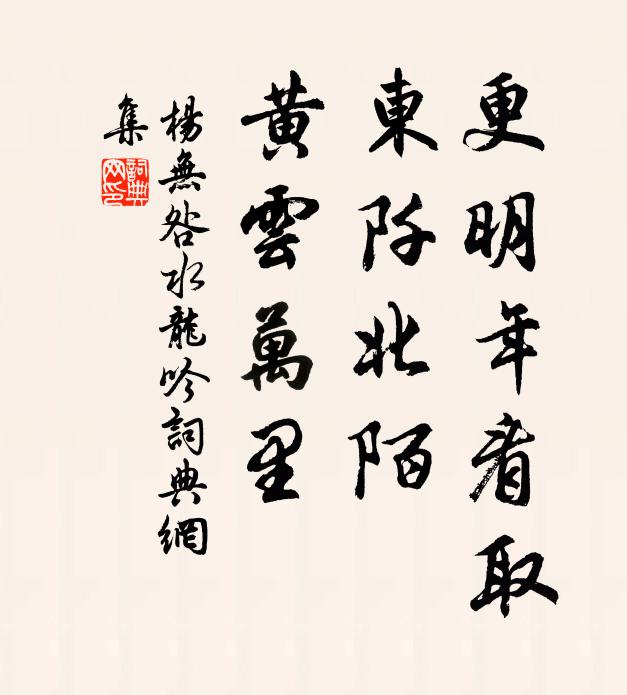 更明年看取
東阡北陌
黃雲萬里
楊無咎水龍吟詞典網
集
詞典
网印